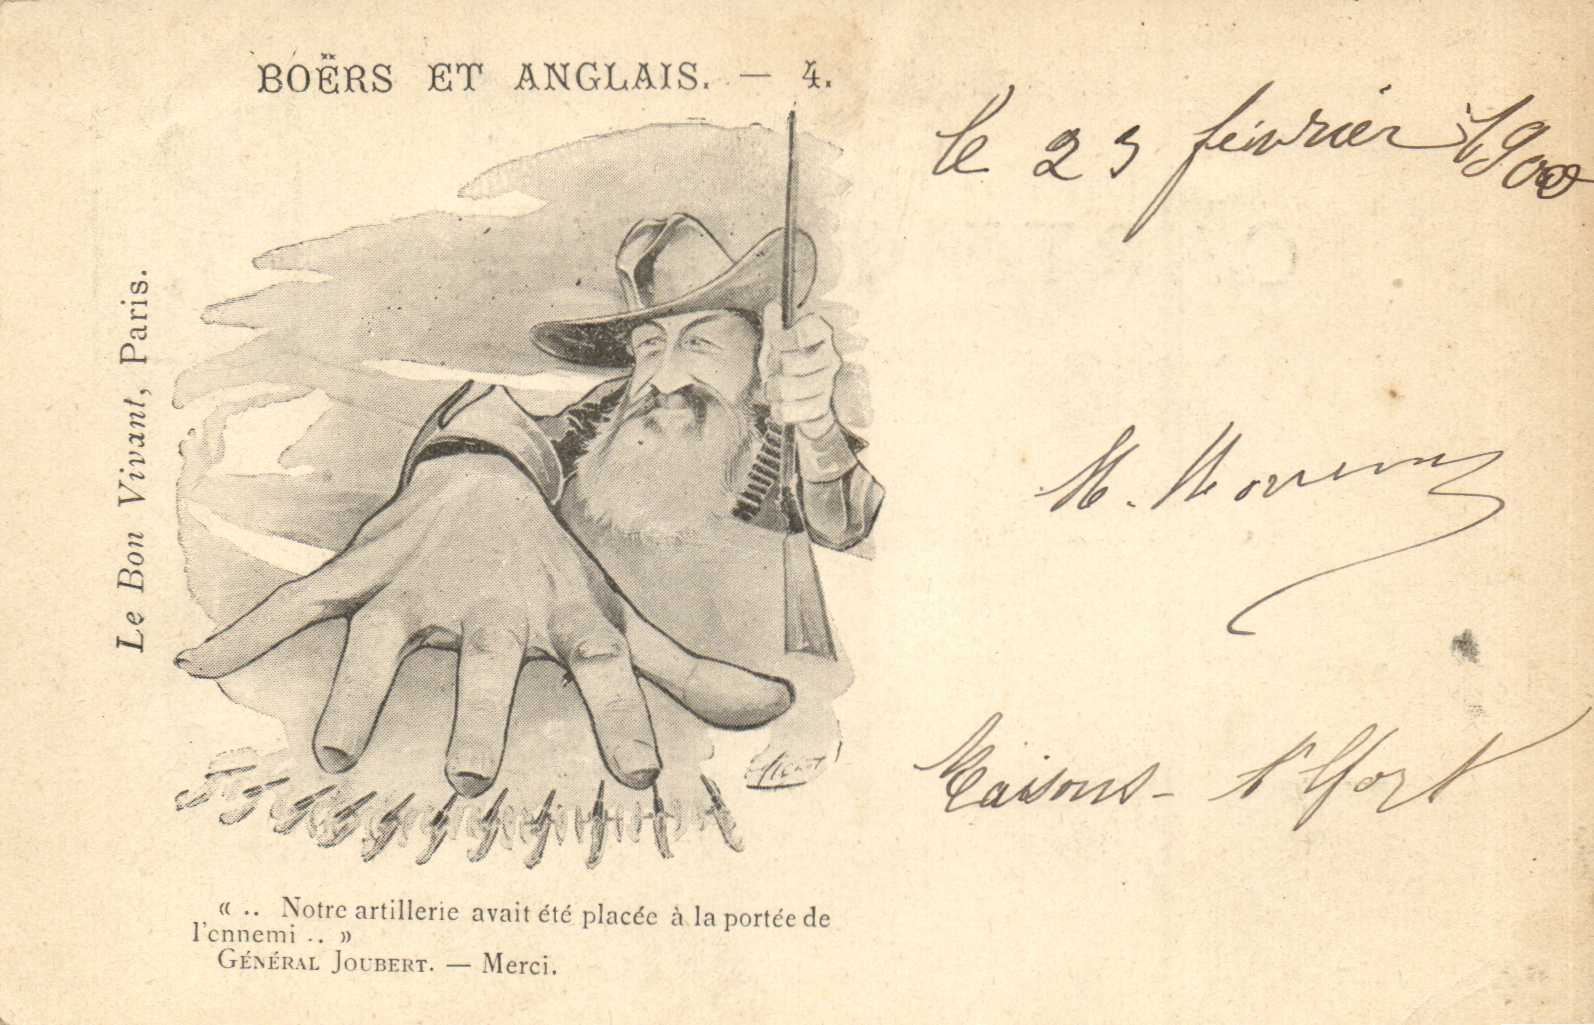 BOËRS ET ANGLAIS. — 4.
Le Bon Vivant, Paris.
« .. Notre artillerie avait été placée à la portée de
l'ennemi .. »
GÉNÉRAL JOUBERT. — Merci.
le 23 février 1900
Maisons-Alfort